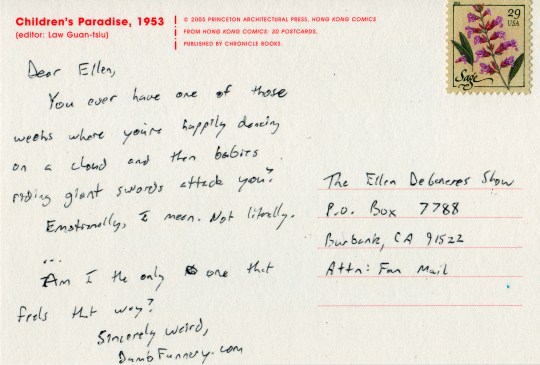 Children's Paradise, 1953
(editor: Law Guan-tsiu)
© 2005 PRINCETON ARCHITECTURAL PRESS, HONG KONG COMICS
FROM HONG KONG COMICS: 30 POSTCARDS,
PUBLISHED BY CHRONICLE BOOKS.
29
USA
Sage
Dear Ellen,
You ever have one of those
weeks where you're happily dancing
on a cloud and then babies
riding giant swords attack you?
Emotionally, I mean. Not literally.
...
Am I the only one that
feels that way?
Sincerely weird,
DumbFunnery.com
The Ellen DeGeneres Show
P.O. Box 7788
Burbank, CA 91522
Attn: Fan Mail